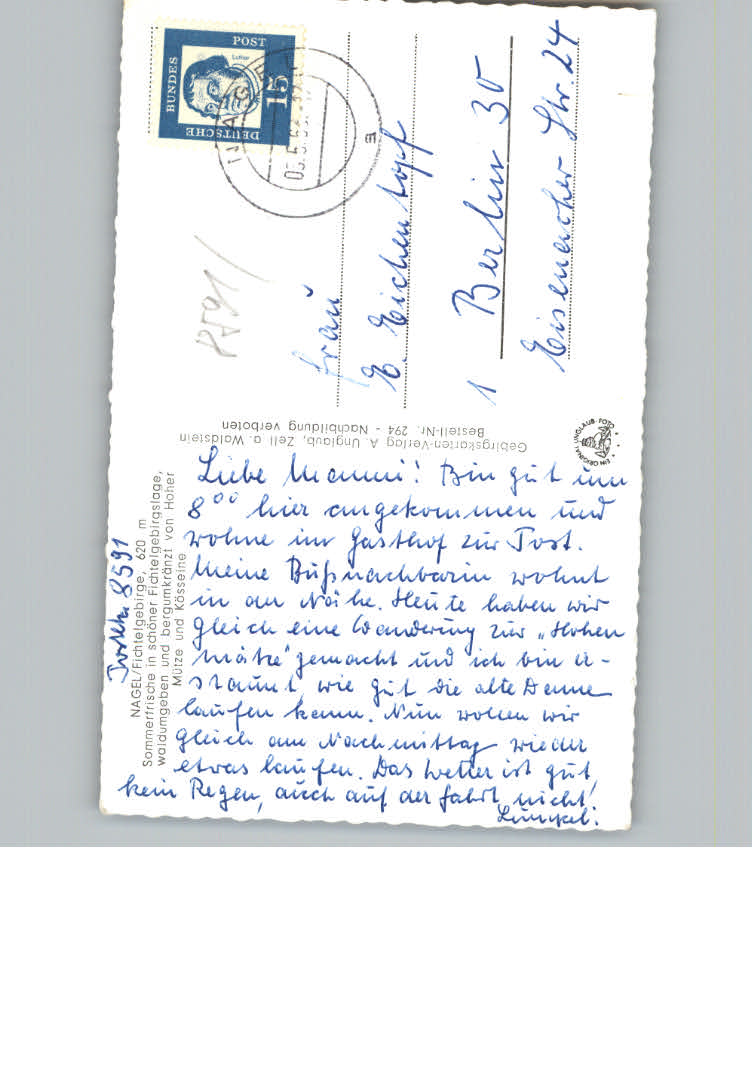 Postlz. 8591
NAGEL/Fichtelgebirge, 620 m
Sommerfrische in schöner Fichtelgebirgslage,
waldumgeben und bergumkränzt von Hoher
Mütze und Kösseine
Liebe Mammi! Bin gut um
8⁰⁰ hier angekommen und
wohne im Gasthof zur Post.
Meine Bußnachbarin wohnt
in der Nähe. Heute haben wir
gleich eine Wanderung zur „Hohen
Mätze" gemacht und ich bin er-
staunt, wie gut die alte Dame
laufen kann. Nun wollen wir
gleich am Nachmittag wieder
etwas laufen. Das Wetter ist gut,
kein Regen, auch auf der Fahrt nicht!
Gebirgskarten-Verlag A. Unglaub, Zell a. Waldstein
Bestell-Nr. 294 - Nachbildung verboten
EIN ORIGINAL UNGLAUB-FOTO
DEUTSCHE BUNDESPOST
Luther
15
NAGEL
a
8591
Frau
E. Eichentopf
1 Berlin 30
Eisenacher Str. 24